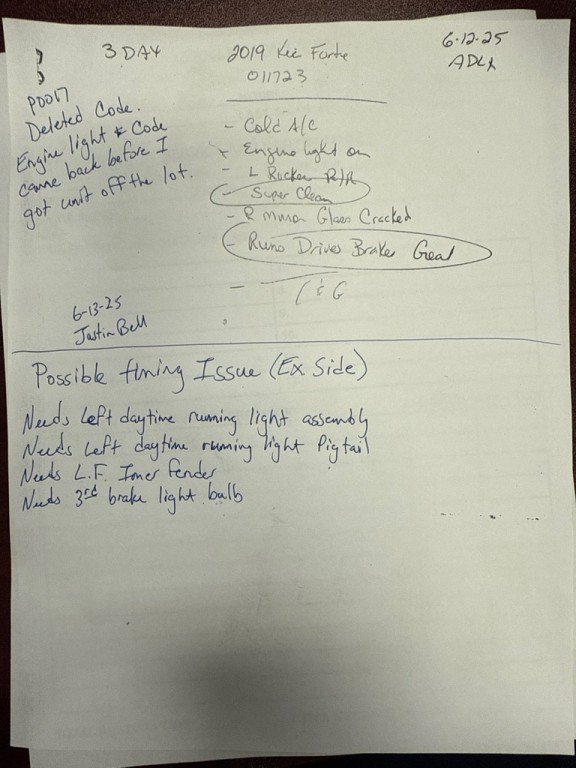 3 DAY
2019 Kia Forte
6-12-25
011723
P0017
Deleted Code.
Engine light & Code
came back before I
got unit off the lot.
- Cold A/C
- Engine light on
- L Rocker R/R
- Super Clean
- R mirror Glass Cracked
- Runs Drives Brakes Great
6-13-25
Justin Bell
Possible timing Issue (Ex. Side)
Needs Left daytime running light assembly
Needs Left daytime running light Pigtail
Needs L.F. Inner fender
Needs 3rd brake light bulb